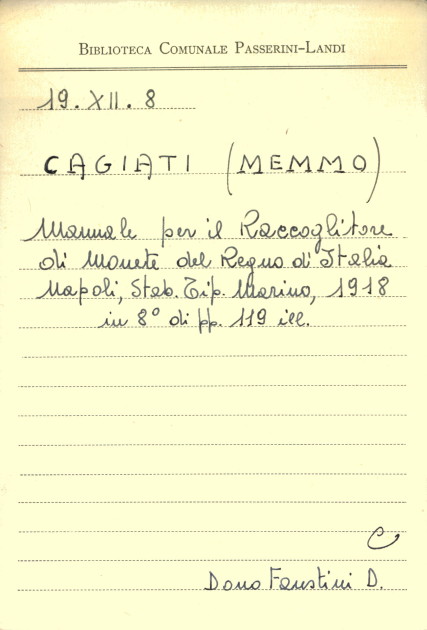 BIBLIOTECA COMUNALE PASSERINI-LANDI
19. XII. 8
CAGIATI (MEMMO)
Manuale per il Raccoglitore
di Monete del Regno d'Italia
Napoli, Stab. Tip. Marino, 1918
in 8° di pp. 119 ill.
C
Dono Faustini D.